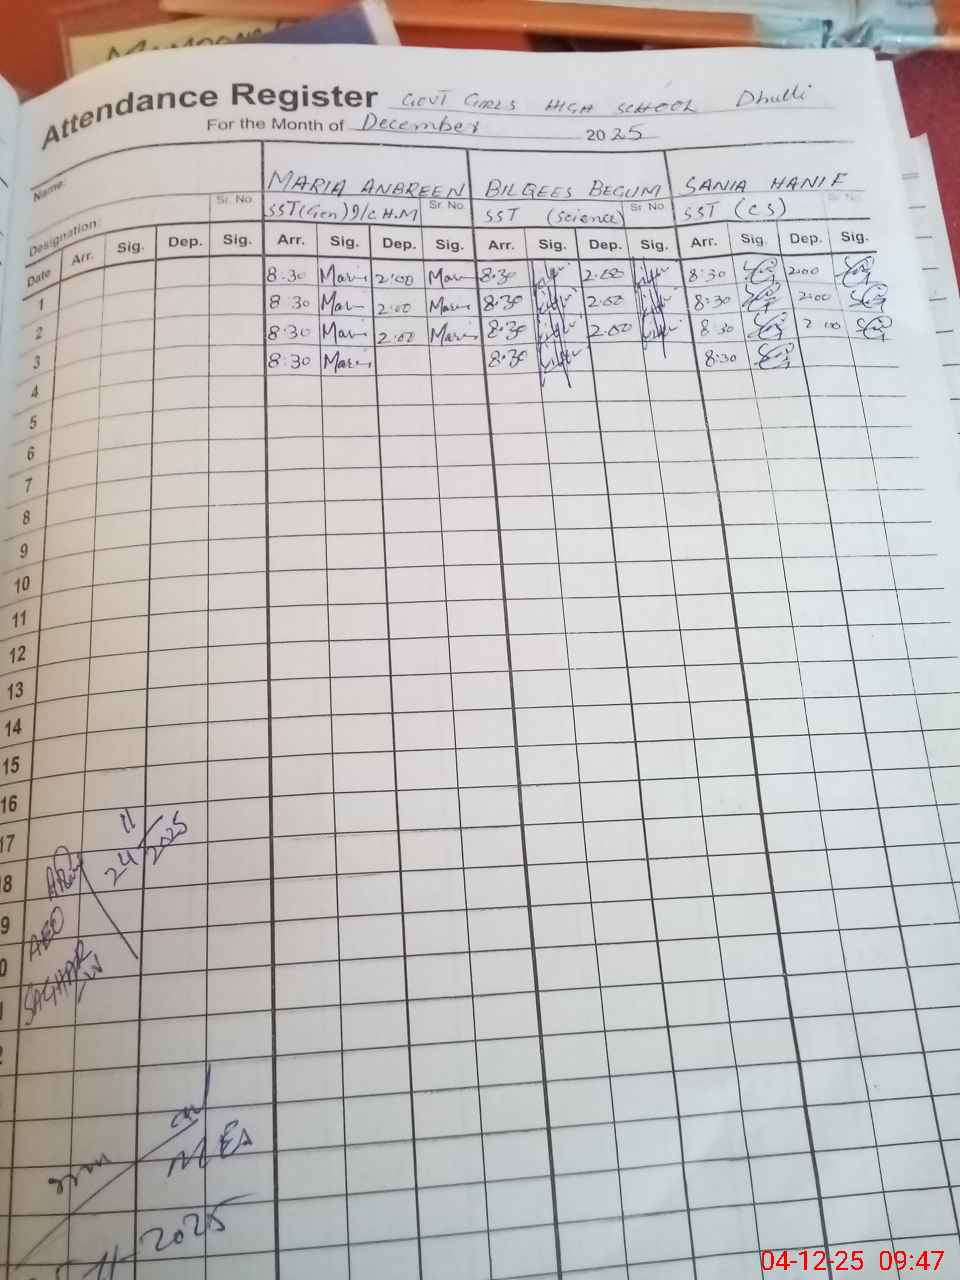 Attendance Register GOVT GIRLS HIGH SCHOOL Dhulli
For the Month of December 2025
Name: MARIA ANBREEN BILQEES BEGUM SANIA HANIF
Sr. No. Sr. No. Sr. No. Sr. No.
Designation: SST(Gen) I/C H.M SST (Science) SST (CS)
Date Arr. Sig. Dep. Sig. Arr. Sig. Dep. Sig. Arr. Sig. Dep. Sig. Arr. Sig. Dep. Sig.
1 8:30 2:00 8:30 2:00 8:30 2:00
2 8:30 2:00 8:30 2:00 8:30 2:00
3 8:30 2:00 8:30 2:00 8:30 2:00
4 8:30 8:30 8:30
5
6
7
8
9
10
11
12
13
14
15
16
17
8
9
0
24 11 2025
AEO
SAGHAR
MEA
11 2025
04-12-25 09:47